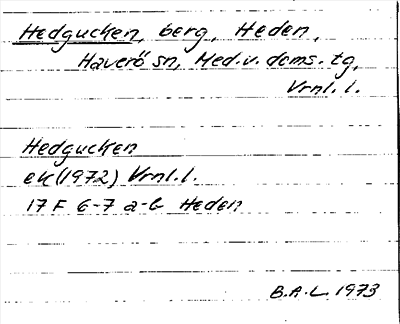 Hedgucken, berg, Heden,
Haverö sn, Med.v. doms. tg,
Vrnl. l.
Hedgucken
ek (1972) Vrnl. l.
17 F 6-7 a-b Heden
B.A.L. 1973